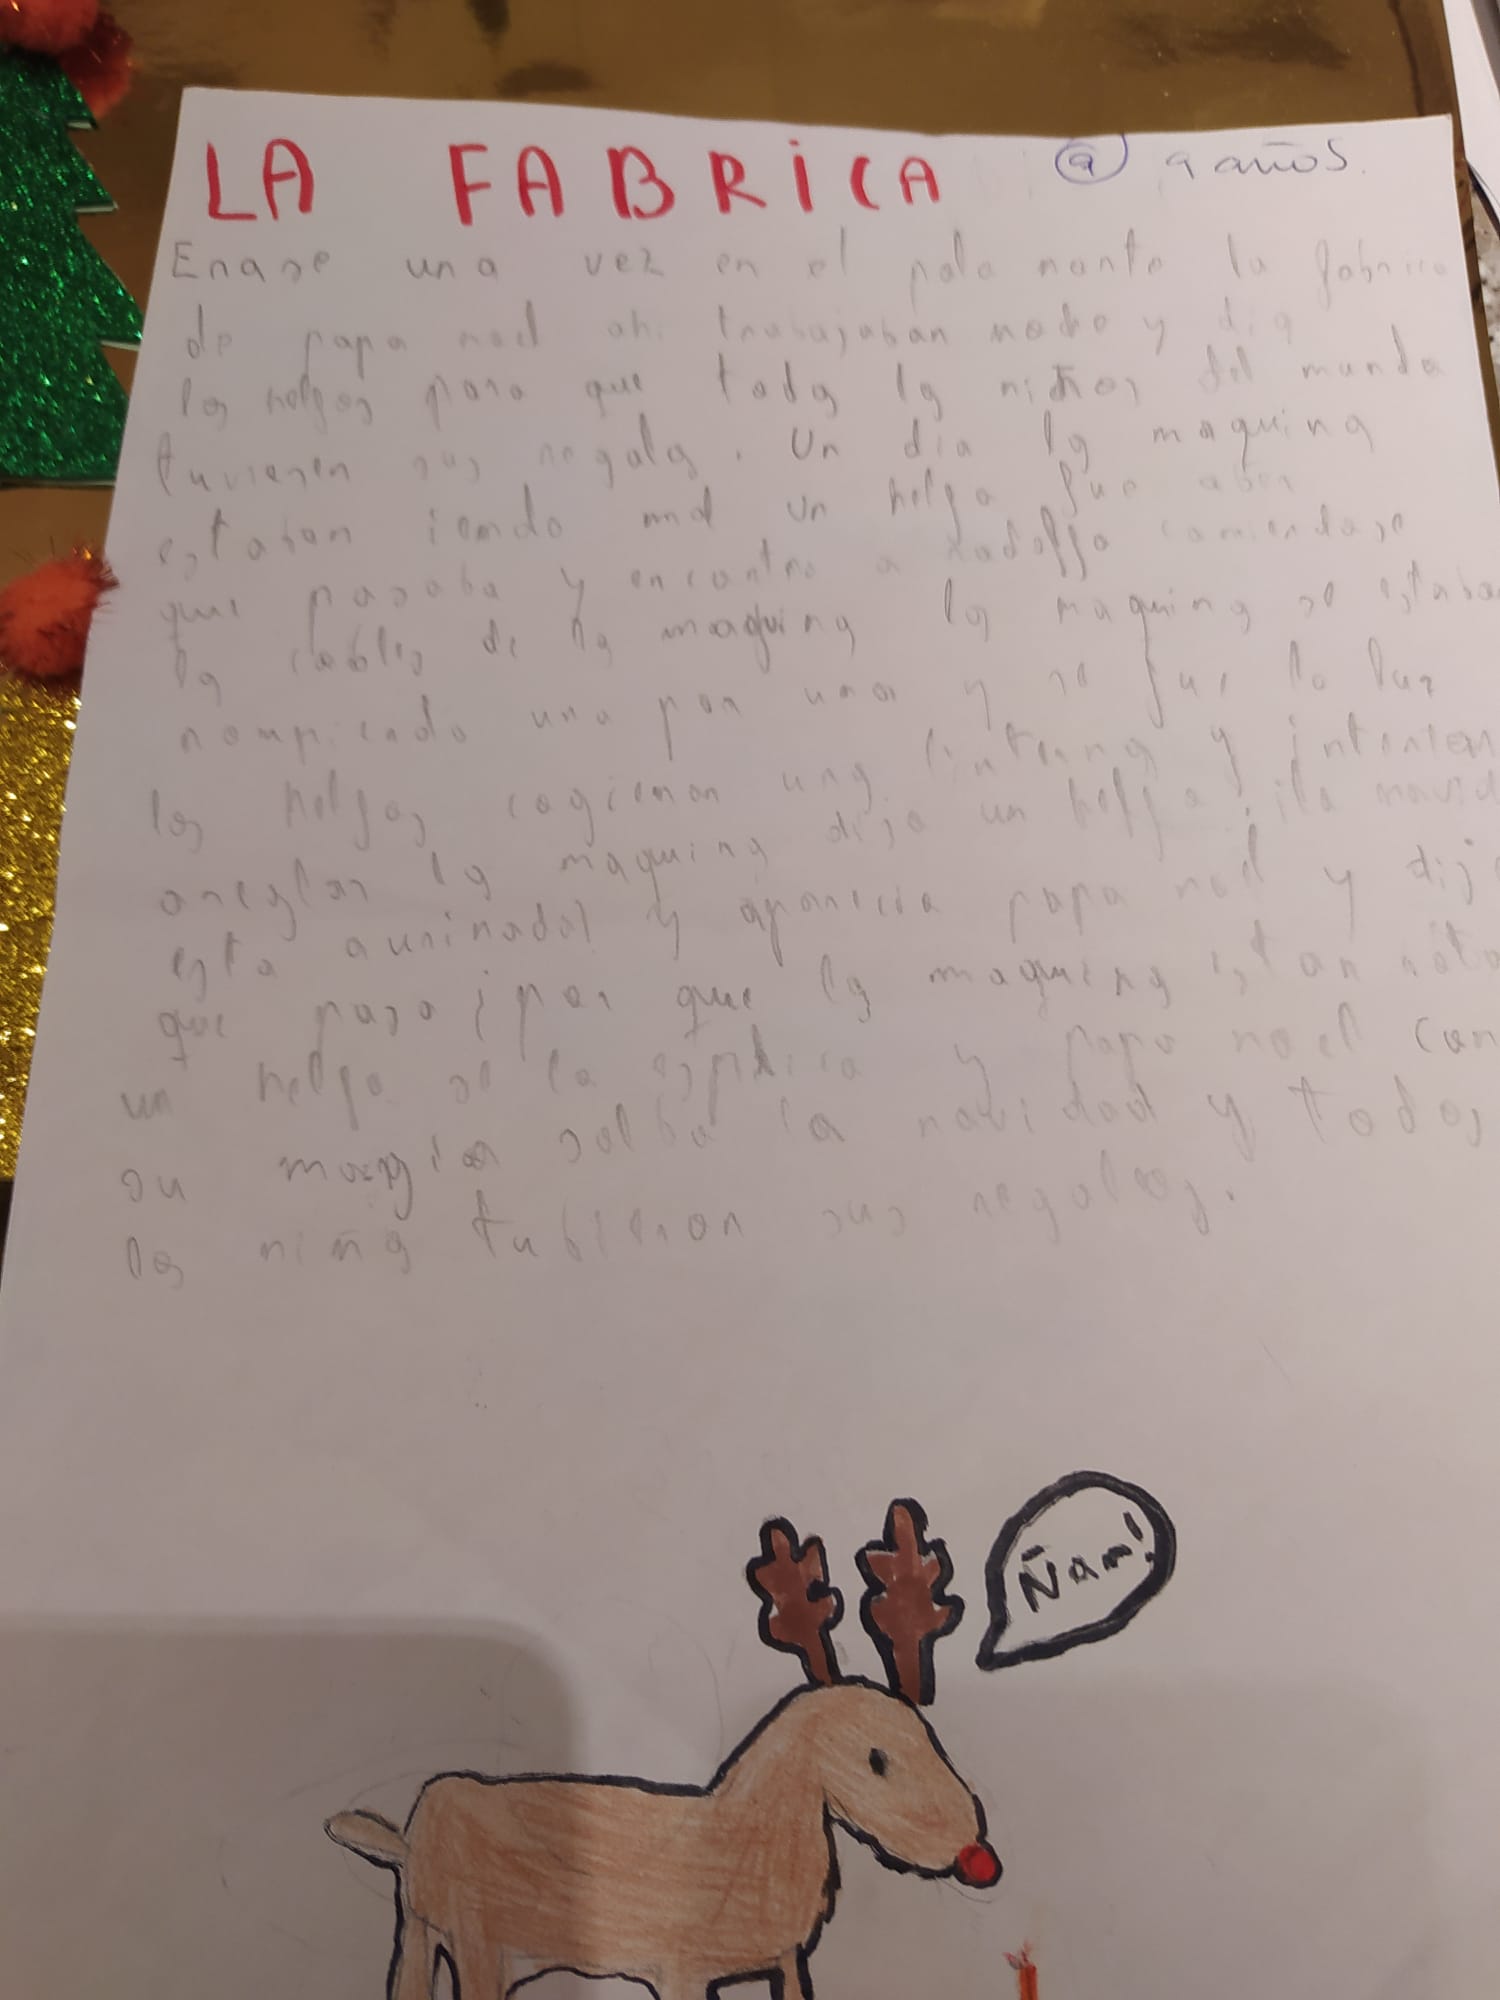 LA FABRICA 9 9 años.
Erase una vez en el polo norte la fabrica
de papa noel ahi trabajaban noche y dia
los helfos para que todos los niños del mundo
tuviesen sus regalos. Un dia las maquinas
estaban iendo mal un helfo fue aber
que pasaba y encontro a Rodolfo comiendose
los cables de las maquinas las maquinas se estaban
rompiendo una por una y se fue la luz
los helfos cogieron unas linternas y intentaron
areglar las maquinas dijo un helfo ¡la navid
esta aurinada! y aparecio papa noel y dijo
que pasa ¡por que las maquinas estan rota
un helfo se lo esplica y papa noel con
su magia salba la navidad y todos
los niños tubieron sus regalos.
Ñam!